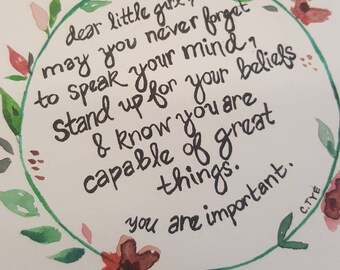 dear little girl,
may you never forget
to speak your mind,
stand up for your beliefs
& know you are
capable of great
things.
you are important.
C.TYE